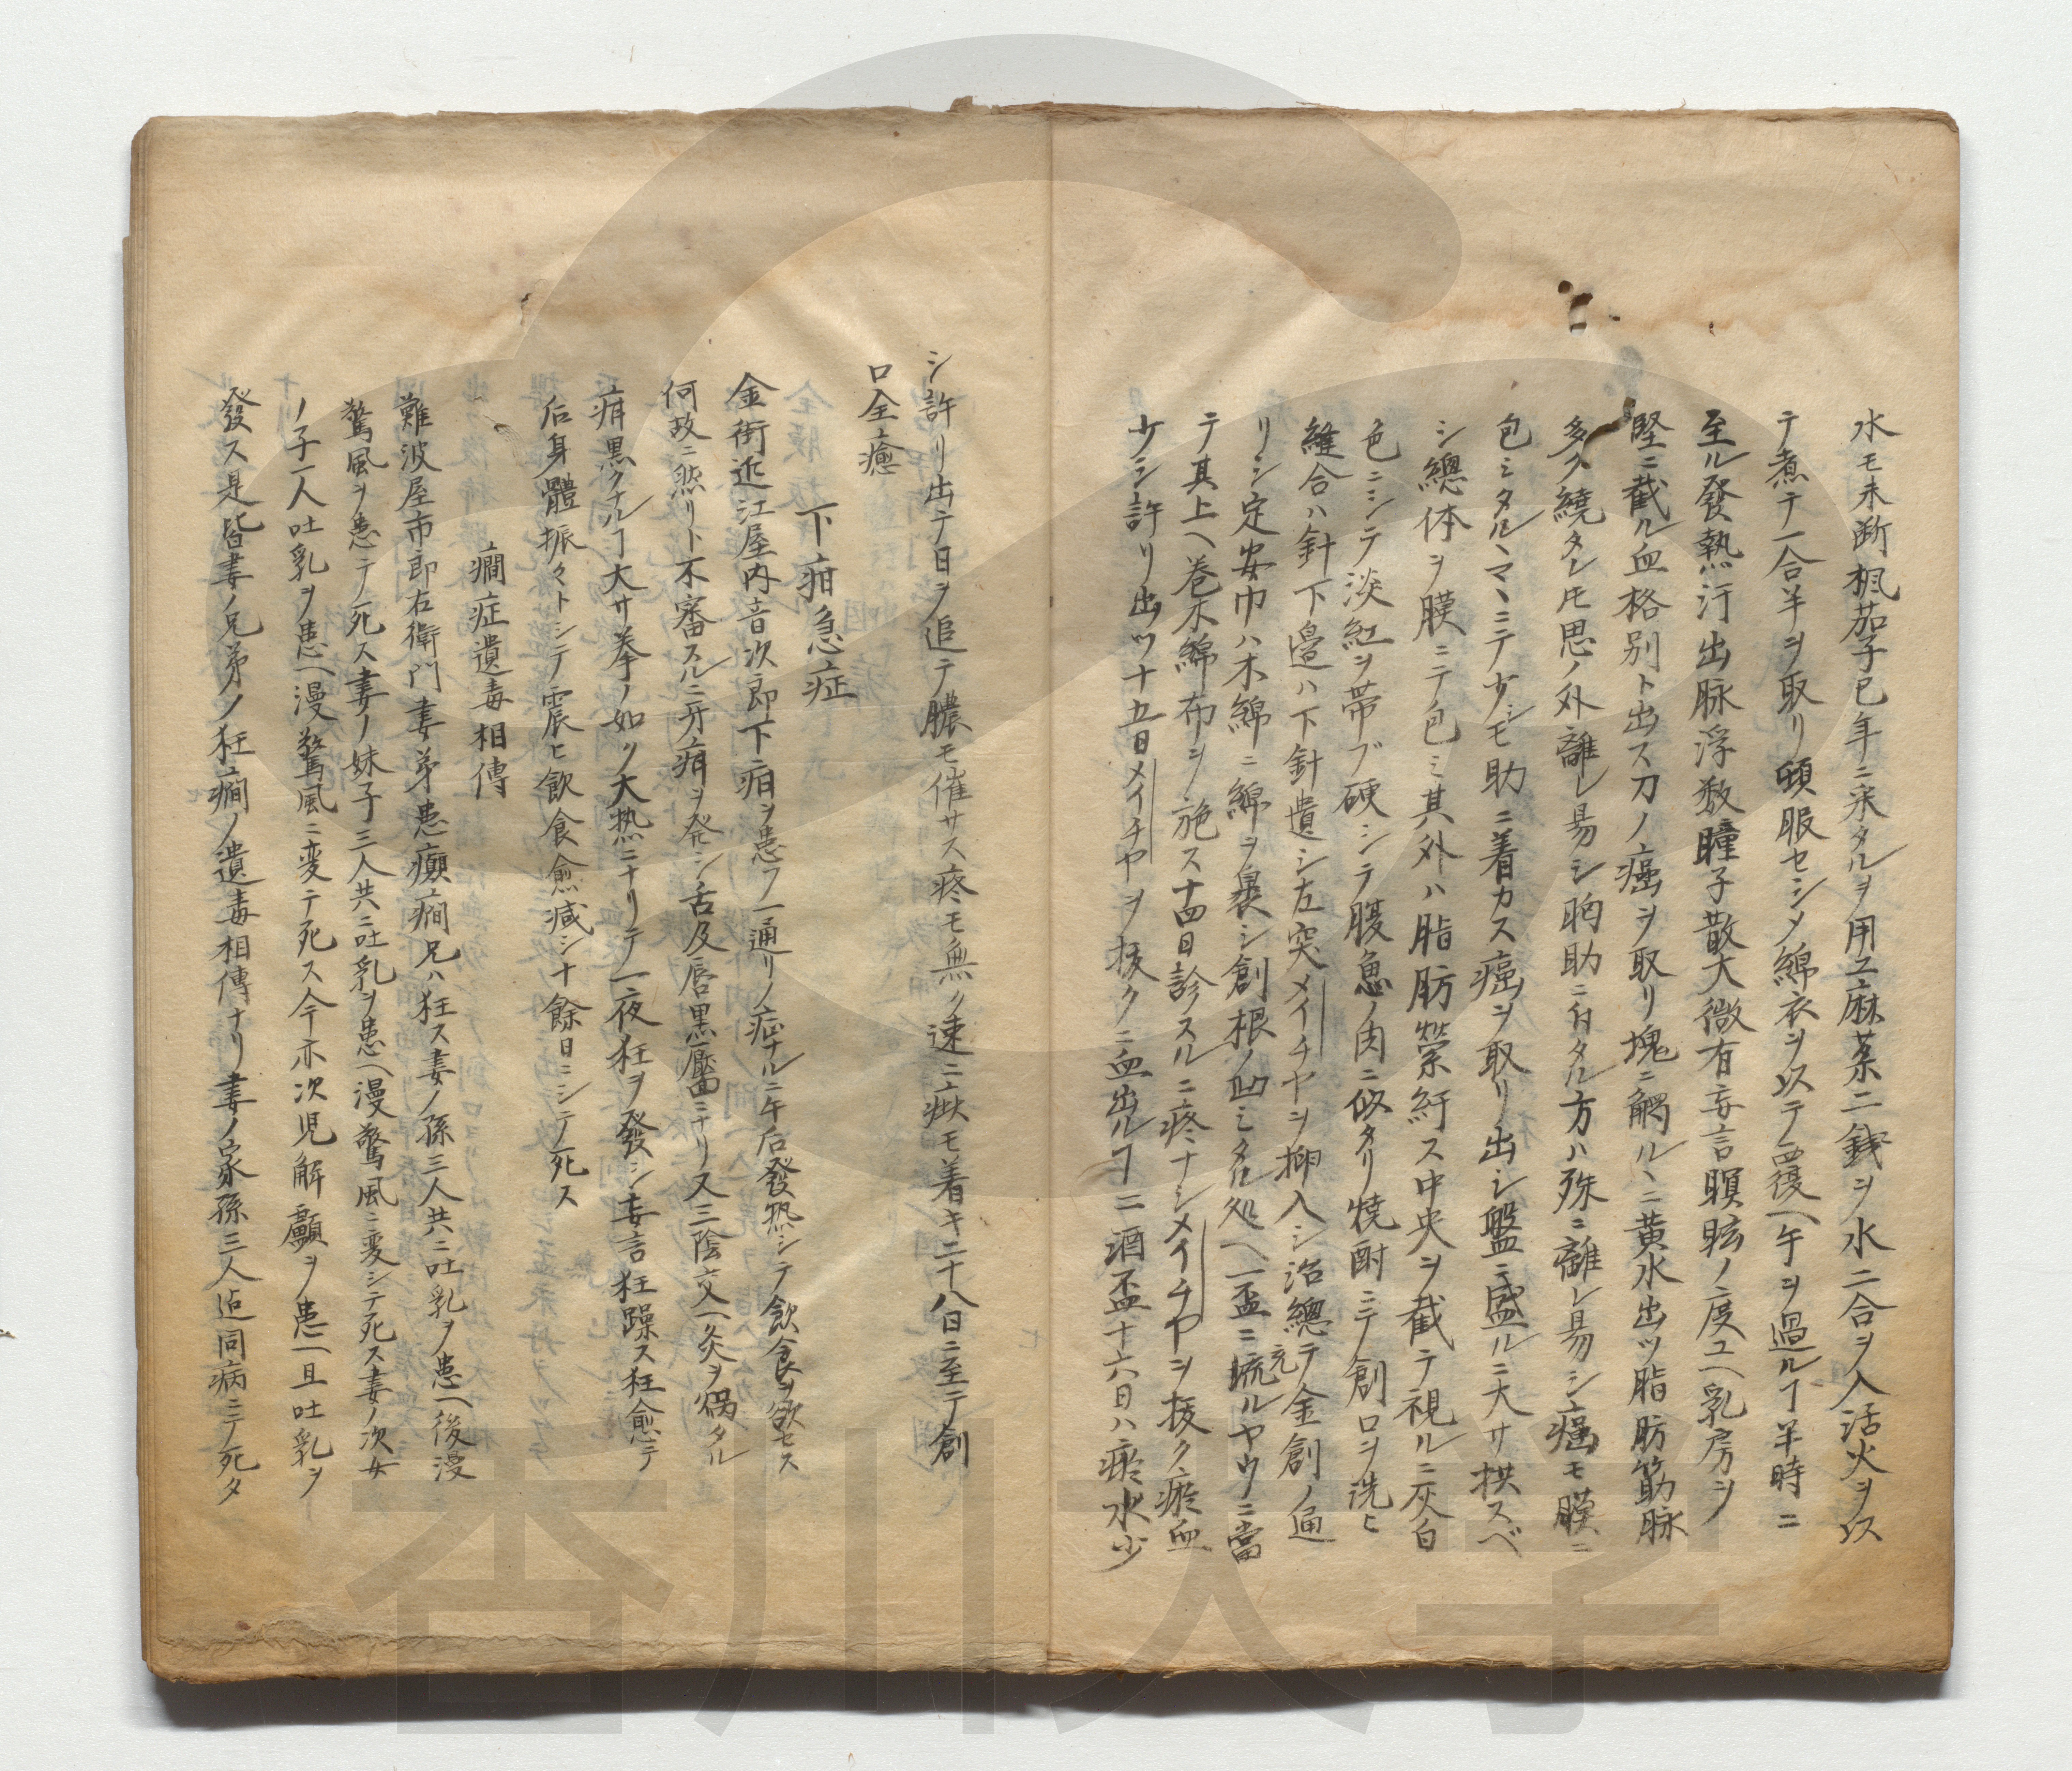 水モ未断楓茄子巳年ニ采タルヲ用ユ麻葉二銭ヲ水二合ヲ入活火ヲ以
テ煮テ一合半ヲ取リ頓服セシメ綿衣ヲ以テ覆ヘ午ヲ過ルヿ半時ニ
至ル發熱汗出脉浮数瞳子散大微有妄言瞑眩ノ度ユヘ乳房ヲ
堅ニ截ル血格别ト出ス刀ノ癌ヲ取リ塊ニ觸ルヽニ黄水出ツ脂肪筋脉
多ク繞タレ𪜈思ノ外離レ易シ胸肋ニ付タル方ハ殊ニ離レ易シ癌モ膜ニ
包ミタルマヽニテ少シモ助ニ着カス癌ヲ取リ出シ盤ニ盛ルニ大サ拱スベ
シ總体ヲ膜ニテ包ミ其外ハ脂肪縈紆ス中央ヲ截テ視ルニ灰白
色ニシテ淡紅ヲ帯ブ硬シテ腹魚ノ肉ニ似タリ焼酎ニテ創口ヲ洗ヒ
縫合ハ針下邉ハ下針遺シ左突メイチヤヲ挿入シ治總テ金創ノ通
リシ定安巾ハ木綿ニ綿ヲ裹シ創根ノ凹ミタル処ヘ一盃ニ充琉ルヤウニ當
テ其上ヘ巻木綿布ヲ施ス十四日診スルニ疼ナシメイチヤヲ抜ク瘀血
少シ許リ出ツ十五日メイチヤヲ抜クニ血出ルヿ二酒盃十六日ハ瘀水少
シ許リ出テ日ヲ追テ膿モ催サス疼モ無ク速ニ痂モ着キ二十八日ニ至テ創
口全癒
下疳急症
金街近江屋内音次郎下疳ヲ患フ一通リノ症ナルニ午后發热シテ飲食ヲ欲セス
何故ニ然リト不審スルニ牙疳ヲ発シ舌及唇黒靨ニナリ又三陰交ヘ灸ヲ燭タル
痏黒クナルヿ大サ拳ノ如ク大热ニナリテ一夜狂ヲ發シ妄言狂躁ス狂愈テ
后身體振々トシテ震ヒ飲食愈减シ十餘日ニシテ死ス
癇症遺毒相傳
難波屋市郎右衛門妻弟患癲癇兄ハ狂ス妻ノ孫三人共ニ吐乳ヲ患ヘ後漫
驚風ヲ患テ死ス妻ノ妹子三人共ニ吐乳ヲ患ヘ漫驚風ニ変シテ死ス妻ノ次女
ノ子一人吐乳ヲ患ヘ漫驚風ニ変テ死ス今亦次児解顱ヲ患一旦吐乳ヲ
發ス是皆妻ノ兄弟ノ狂癇ノ遺毒相傳ナリ妻ノ家孫三人迠同病ニテ死タ
香川大学